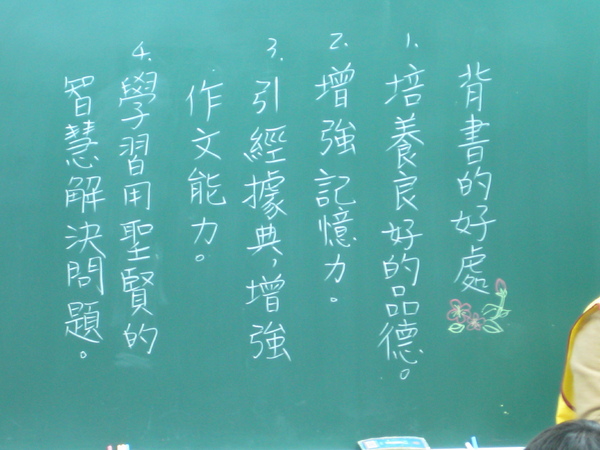 背書的好處
1. 培養良好的品德。
2. 增強記憶力。
3. 引經據典，增強
作文能力。
4. 學習用聖賢的
智慧解決問題。